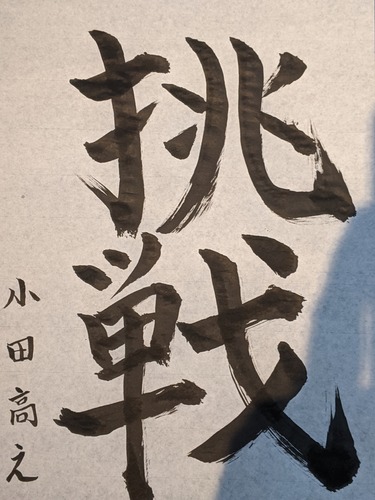 挑戦
小田高え